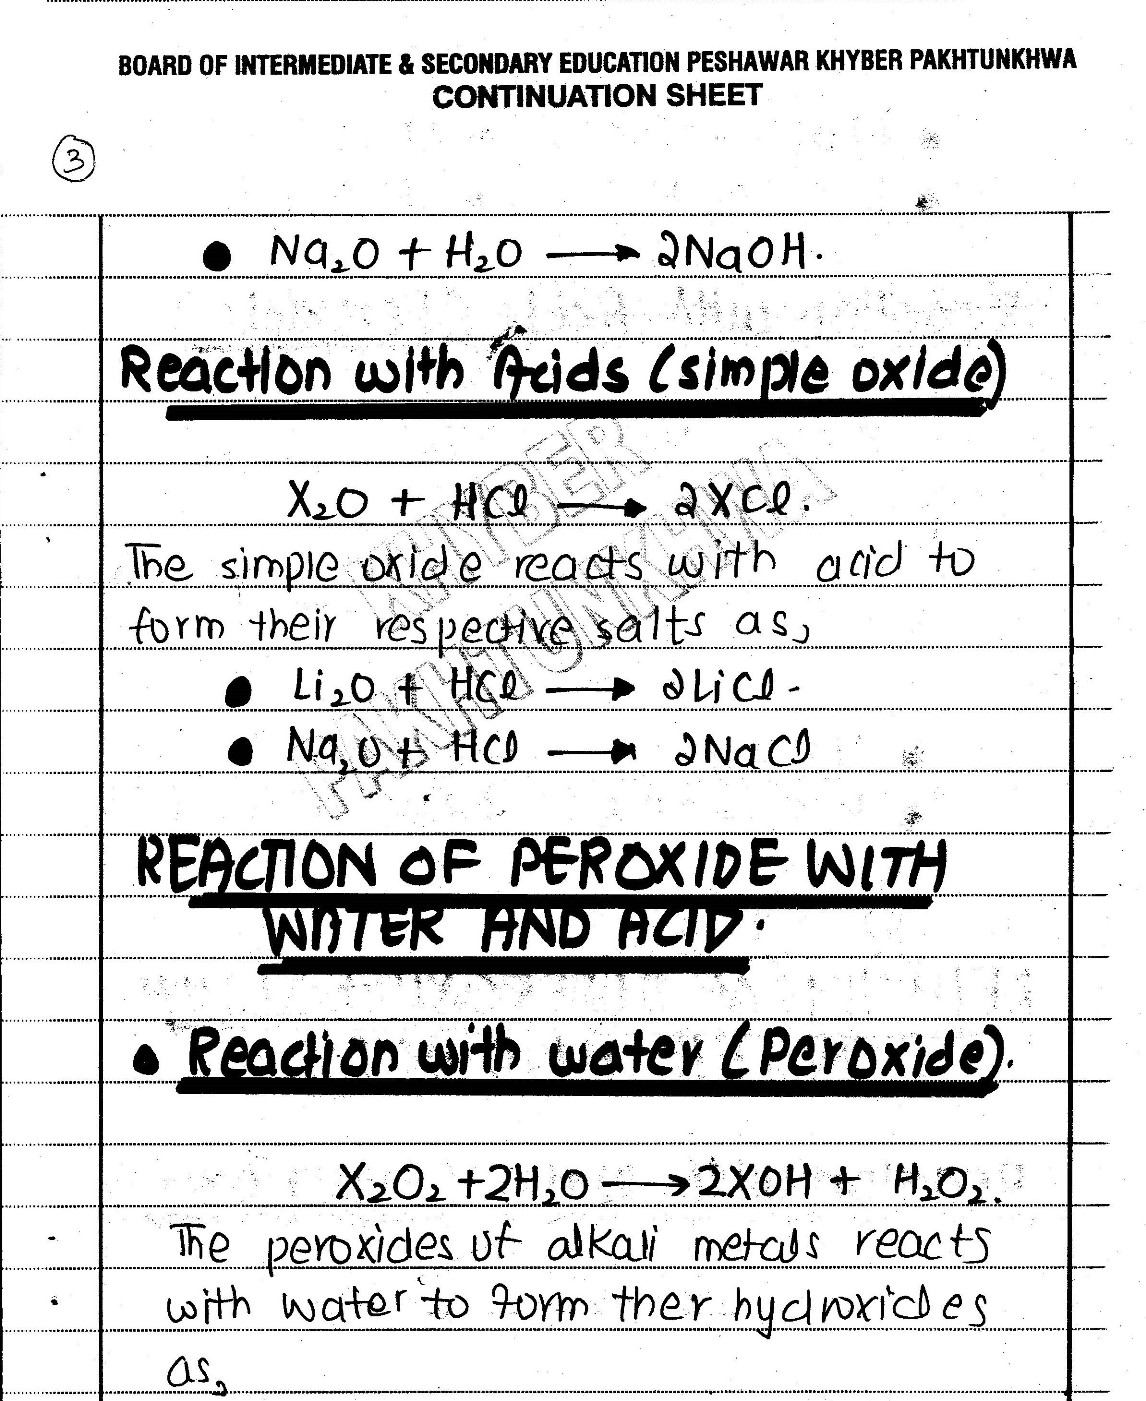 BOARD OF INTERMEDIATE & SECONDARY EDUCATION PESHAWAR KHYBER PAKHTUNKHWA
CONTINUATION SHEET
3
● Na₂O + H₂O ⟶ 2NaOH.
Reaction with Acids (simple oxide)
X₂O + HCl ⟶ 2XCl.
KHYBER
PAKHTUNKHWA
The simple oxide reacts with acid to
form their respective salts as,
● Li₂O + HCl ⟶ 2LiCl.
● Na₂O + HCl ⟶ 2NaCl
REACTION OF PEROXIDE WITH
WATER AND ACID.
● Reaction with water (Peroxide).
X₂O₂ + 2H₂O ⟶ 2XOH + H₂O₂.
The peroxides of alkali metals reacts
with water to form ther hydroxides
as,